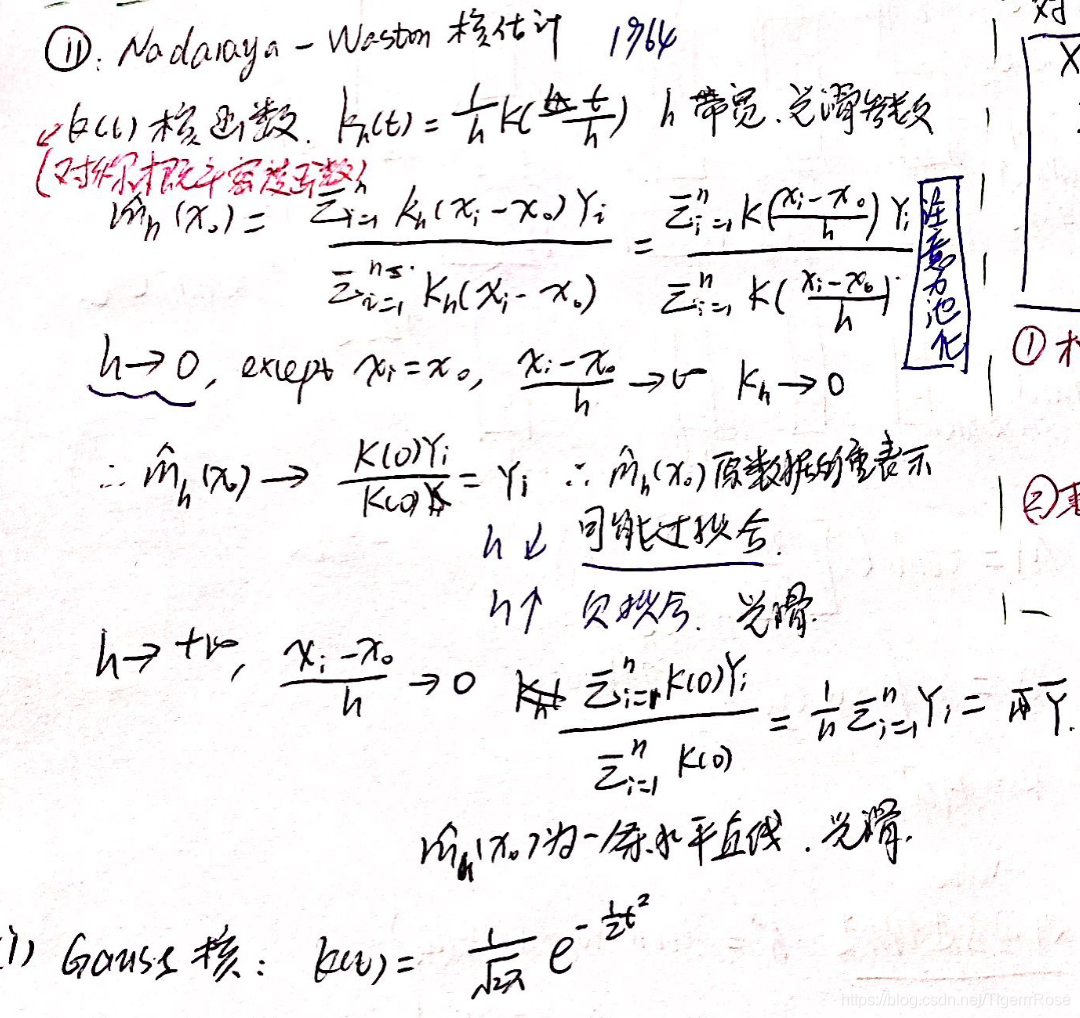 ⑪: Nadaraya - Waston 核估计 1964
k(t) 核函数. k_h(t) = 1/h K(t/h) h 带宽. 光滑参数
(对称概率密度函数)
m̂_h(x₀) = Σ_{i=1}^n k_h(x_i - x₀) Y_i / Σ_{i=1}^n K_h(x_i - x₀) = Σ_{i=1}^n K((x_i - x₀)/h) Y_i / Σ_{i=1}^n K((x_i - x₀)/h)
注意力池化
h → 0, except x_i = x₀, (x_i - x₀)/h → ∞ K_h → 0
∴ m̂_h(x₀) → K(0)Y_i / K(0) = Y_i ∴ m̂_h(x₀) 原数据的重表示
h ↓ 可能过拟合.
h ↑ 欠拟合. 光滑.
h → +∞, (x_i - x₀)/h → 0 Σ_{i=1}^n K(0)Y_i / Σ_{i=1}^n K(0) = 1/n Σ_{i=1}^n Y_i = Ȳ.
m̂_h(x₀) 为一条水平直线. 光滑.
i) Gauss 核: k(t) = 1/√2π e^{-½t²}
对
X
①
②
https://blog.csdn.net/TigerrrRose